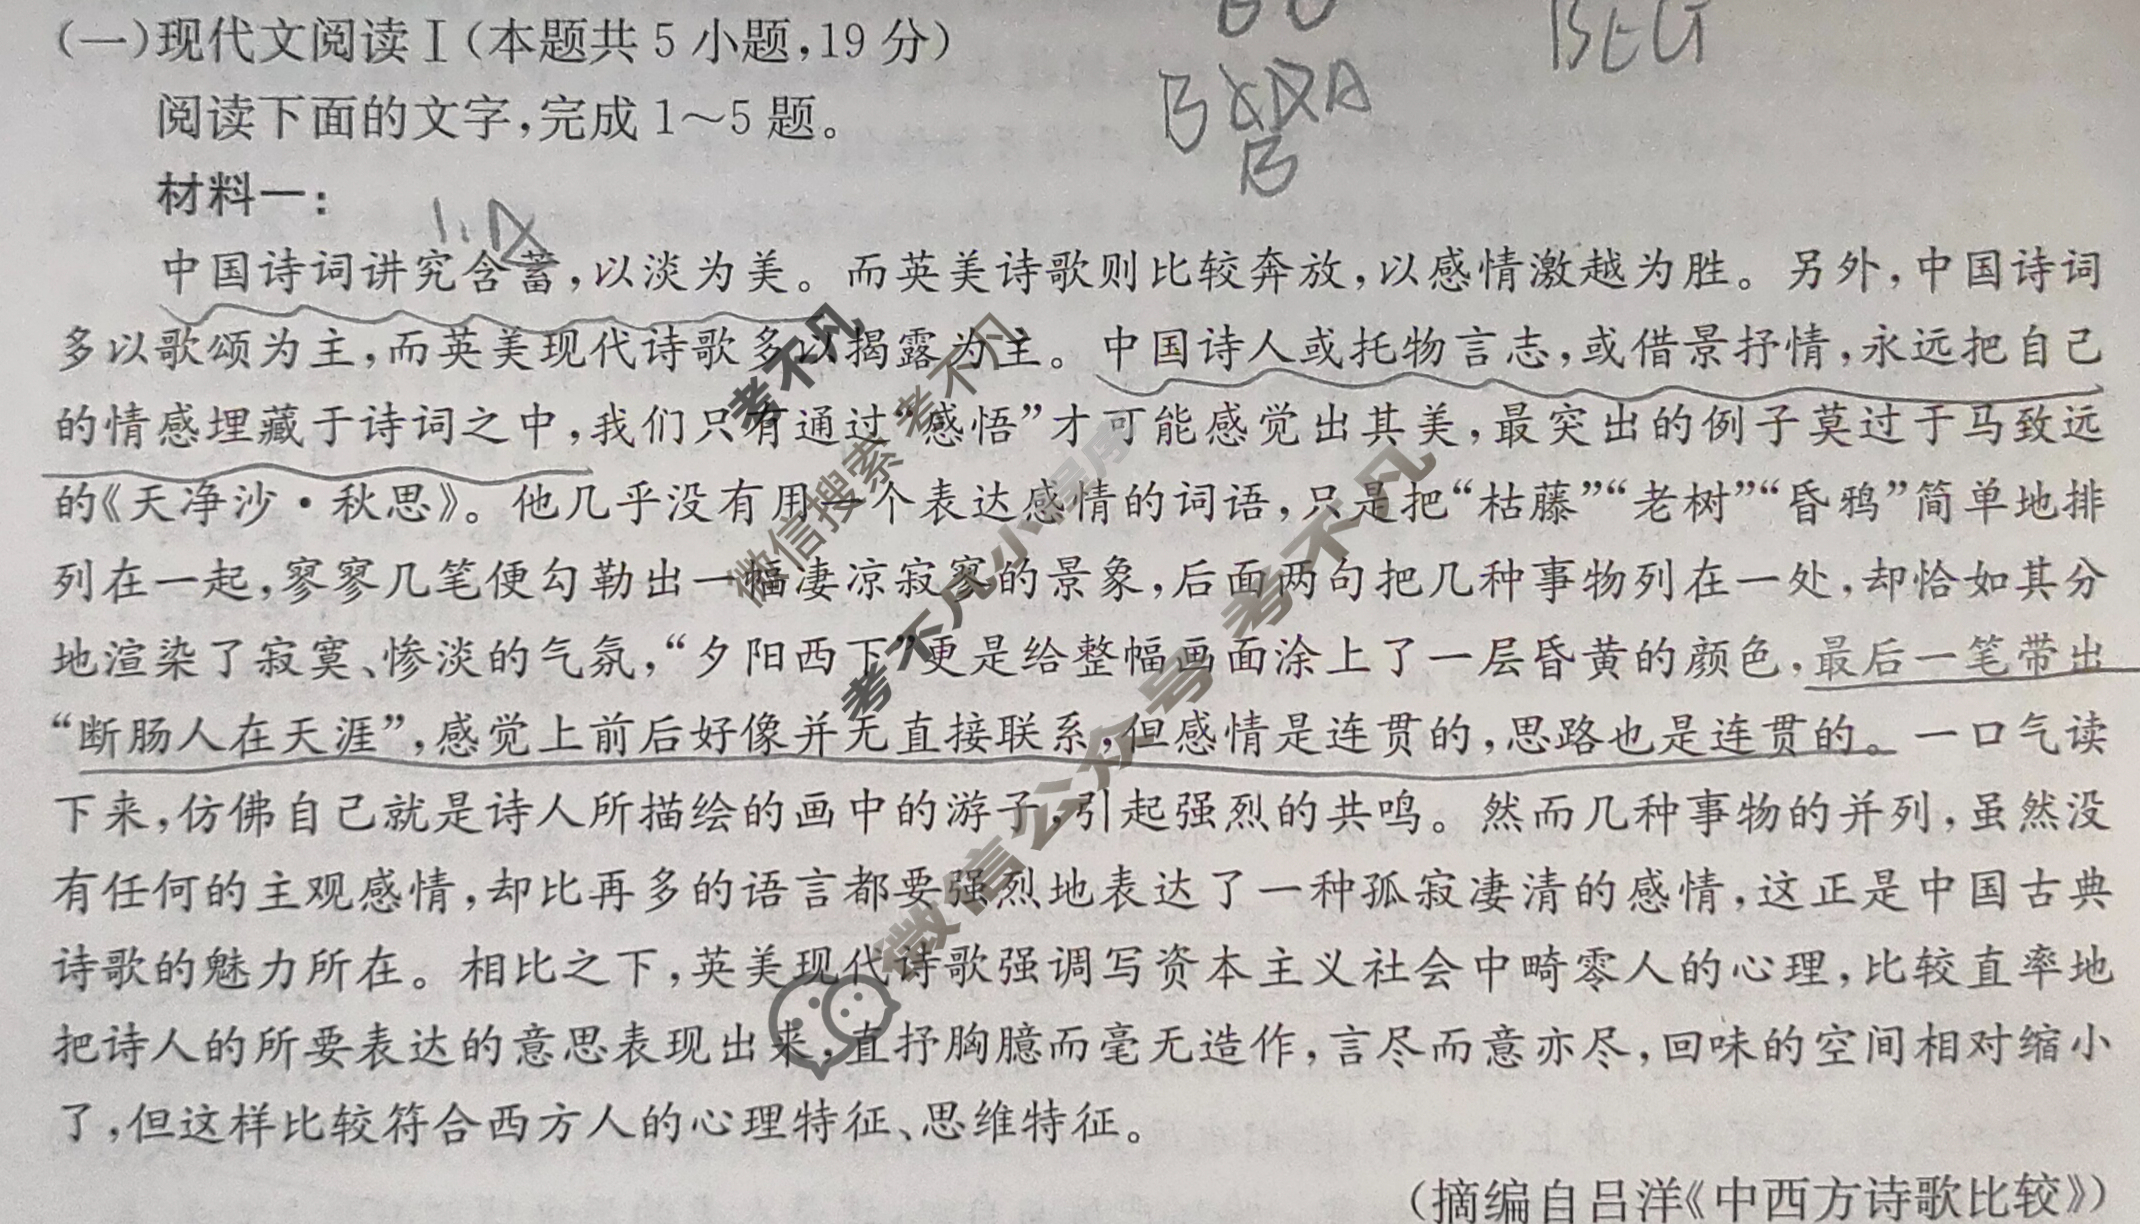 (一)现代文阅读Ⅰ(本题共5小题,19分)
阅读下面的文字,完成1~5题。
材料一:
中国诗词讲究含蓄,以淡为美。而英美诗歌则比较奔放,以感情激越为胜。另外,中国诗词
多以歌颂为主,而英美现代诗歌多以揭露为主。中国诗人或托物言志,或借景抒情,永远把自己
的情感埋藏于诗词之中,我们只有通过“感悟”才可能感觉出其美,最突出的例子莫过于马致远
的《天净沙·秋思》。他几乎没有用一个表达感情的词语,只是把“枯藤”“老树”“昏鸦”简单地排
列在一起,寥寥几笔便勾勒出一幅凄凉寂寥的景象,后面两句把几种事物列在一处,却恰如其分
地渲染了寂寞、惨淡的气氛,“夕阳西下”更是给整幅画面涂上了一层昏黄的颜色,最后一笔带出
“断肠人在天涯”,感觉上前后好像并无直接联系,但感情是连贯的,思路也是连贯的。一口气读
下来,仿佛自己就是诗人所描绘的画中的游子,引起强烈的共鸣。然而几种事物的并列,虽然没
有任何的主观感情,却比再多的语言都要强烈地表达了一种孤寂凄清的感情,这正是中国古典
诗歌的魅力所在。相比之下,英美现代诗歌强调写资本主义社会中畸零人的心理,比较直率地
把诗人的所要表达的意思表现出来,直抒胸臆而毫无造作,言尽而意亦尽,回味的空间相对缩小
了,但这样比较符合西方人的心理特征、思维特征。
(摘编自吕洋《中西方诗歌比较》)
考不凡
微信搜索 考不凡
考不凡小程序
微信公众号 考不凡